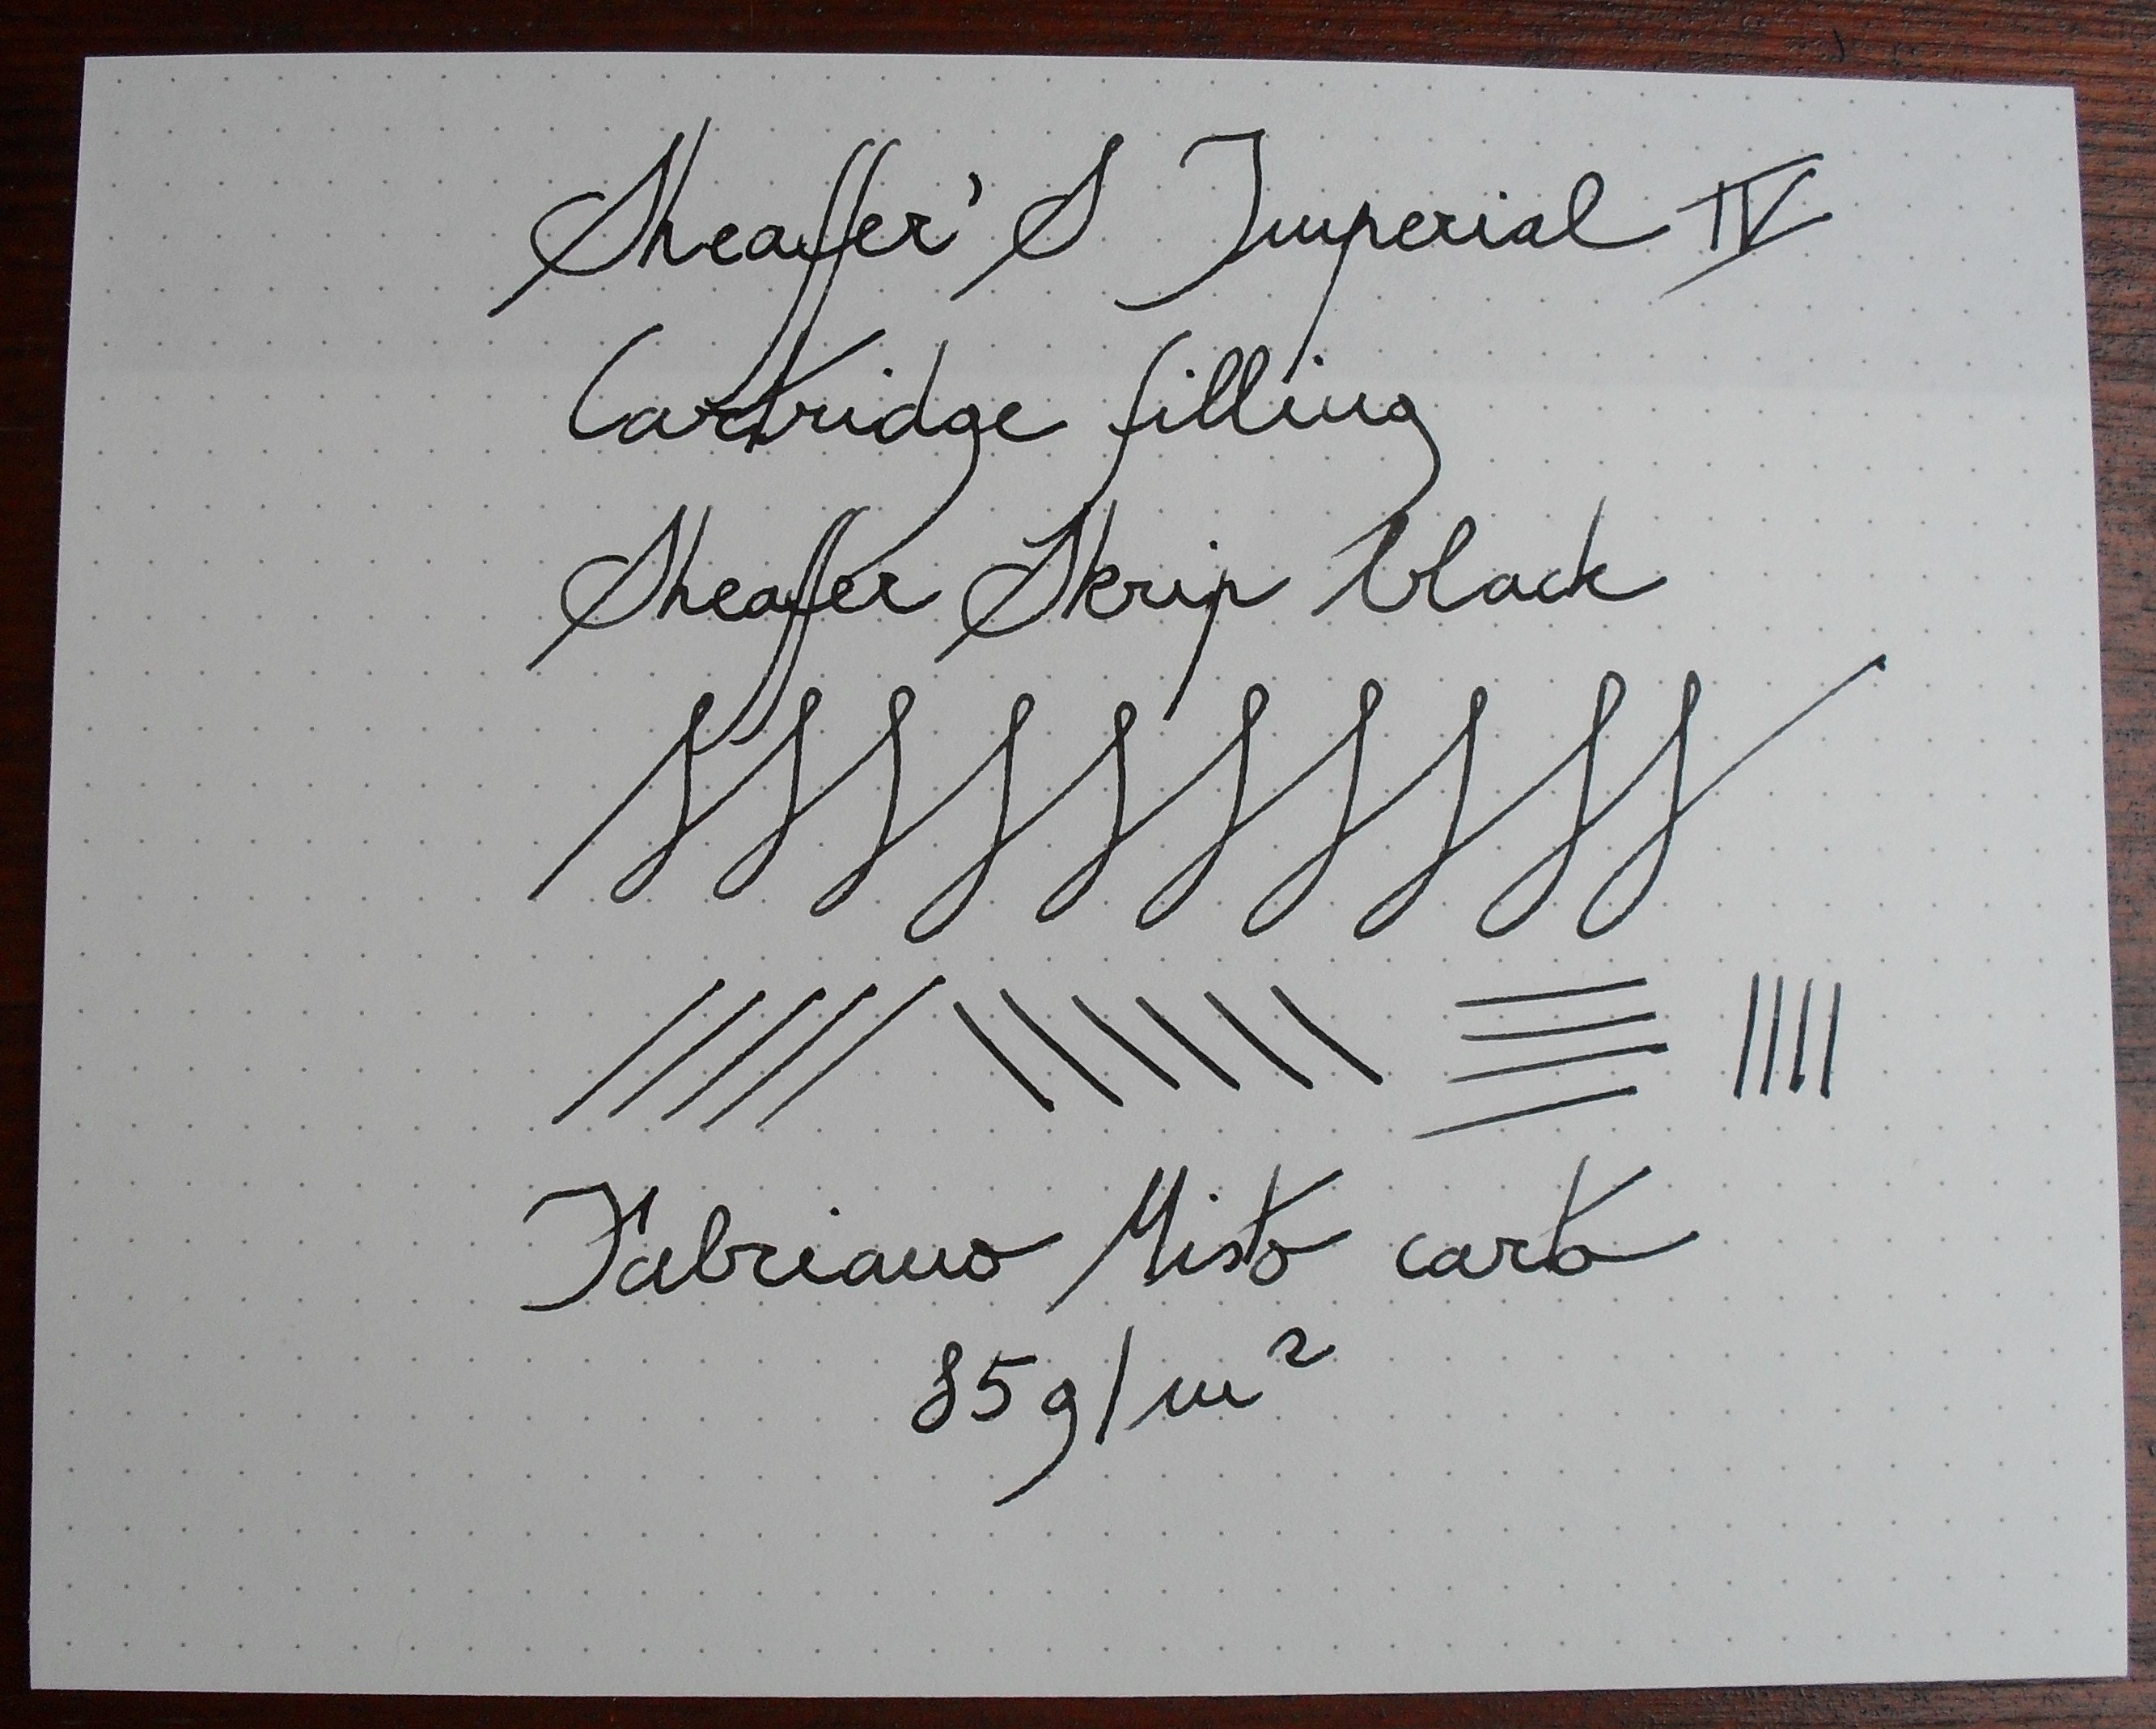 Sheaffer's Imperial IV
Cartridge filling
Sheaffer Skrip black
Fabriano Misto carta
85g/m²